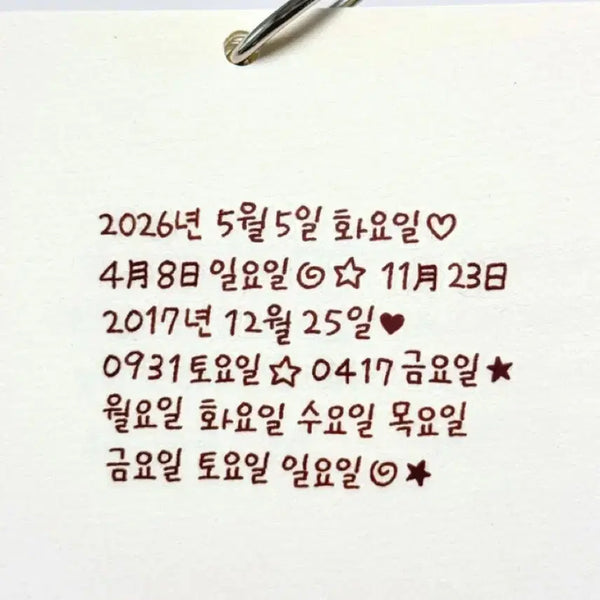 2026년 5월5일 화요일♡
4月8日 일요일꩜☆ 11月23日
2017년 12월 25일♥
0931토요일☆0417금요일★
월요일 화요일 수요일 목요일
금요일 토요일 일요일꩜★